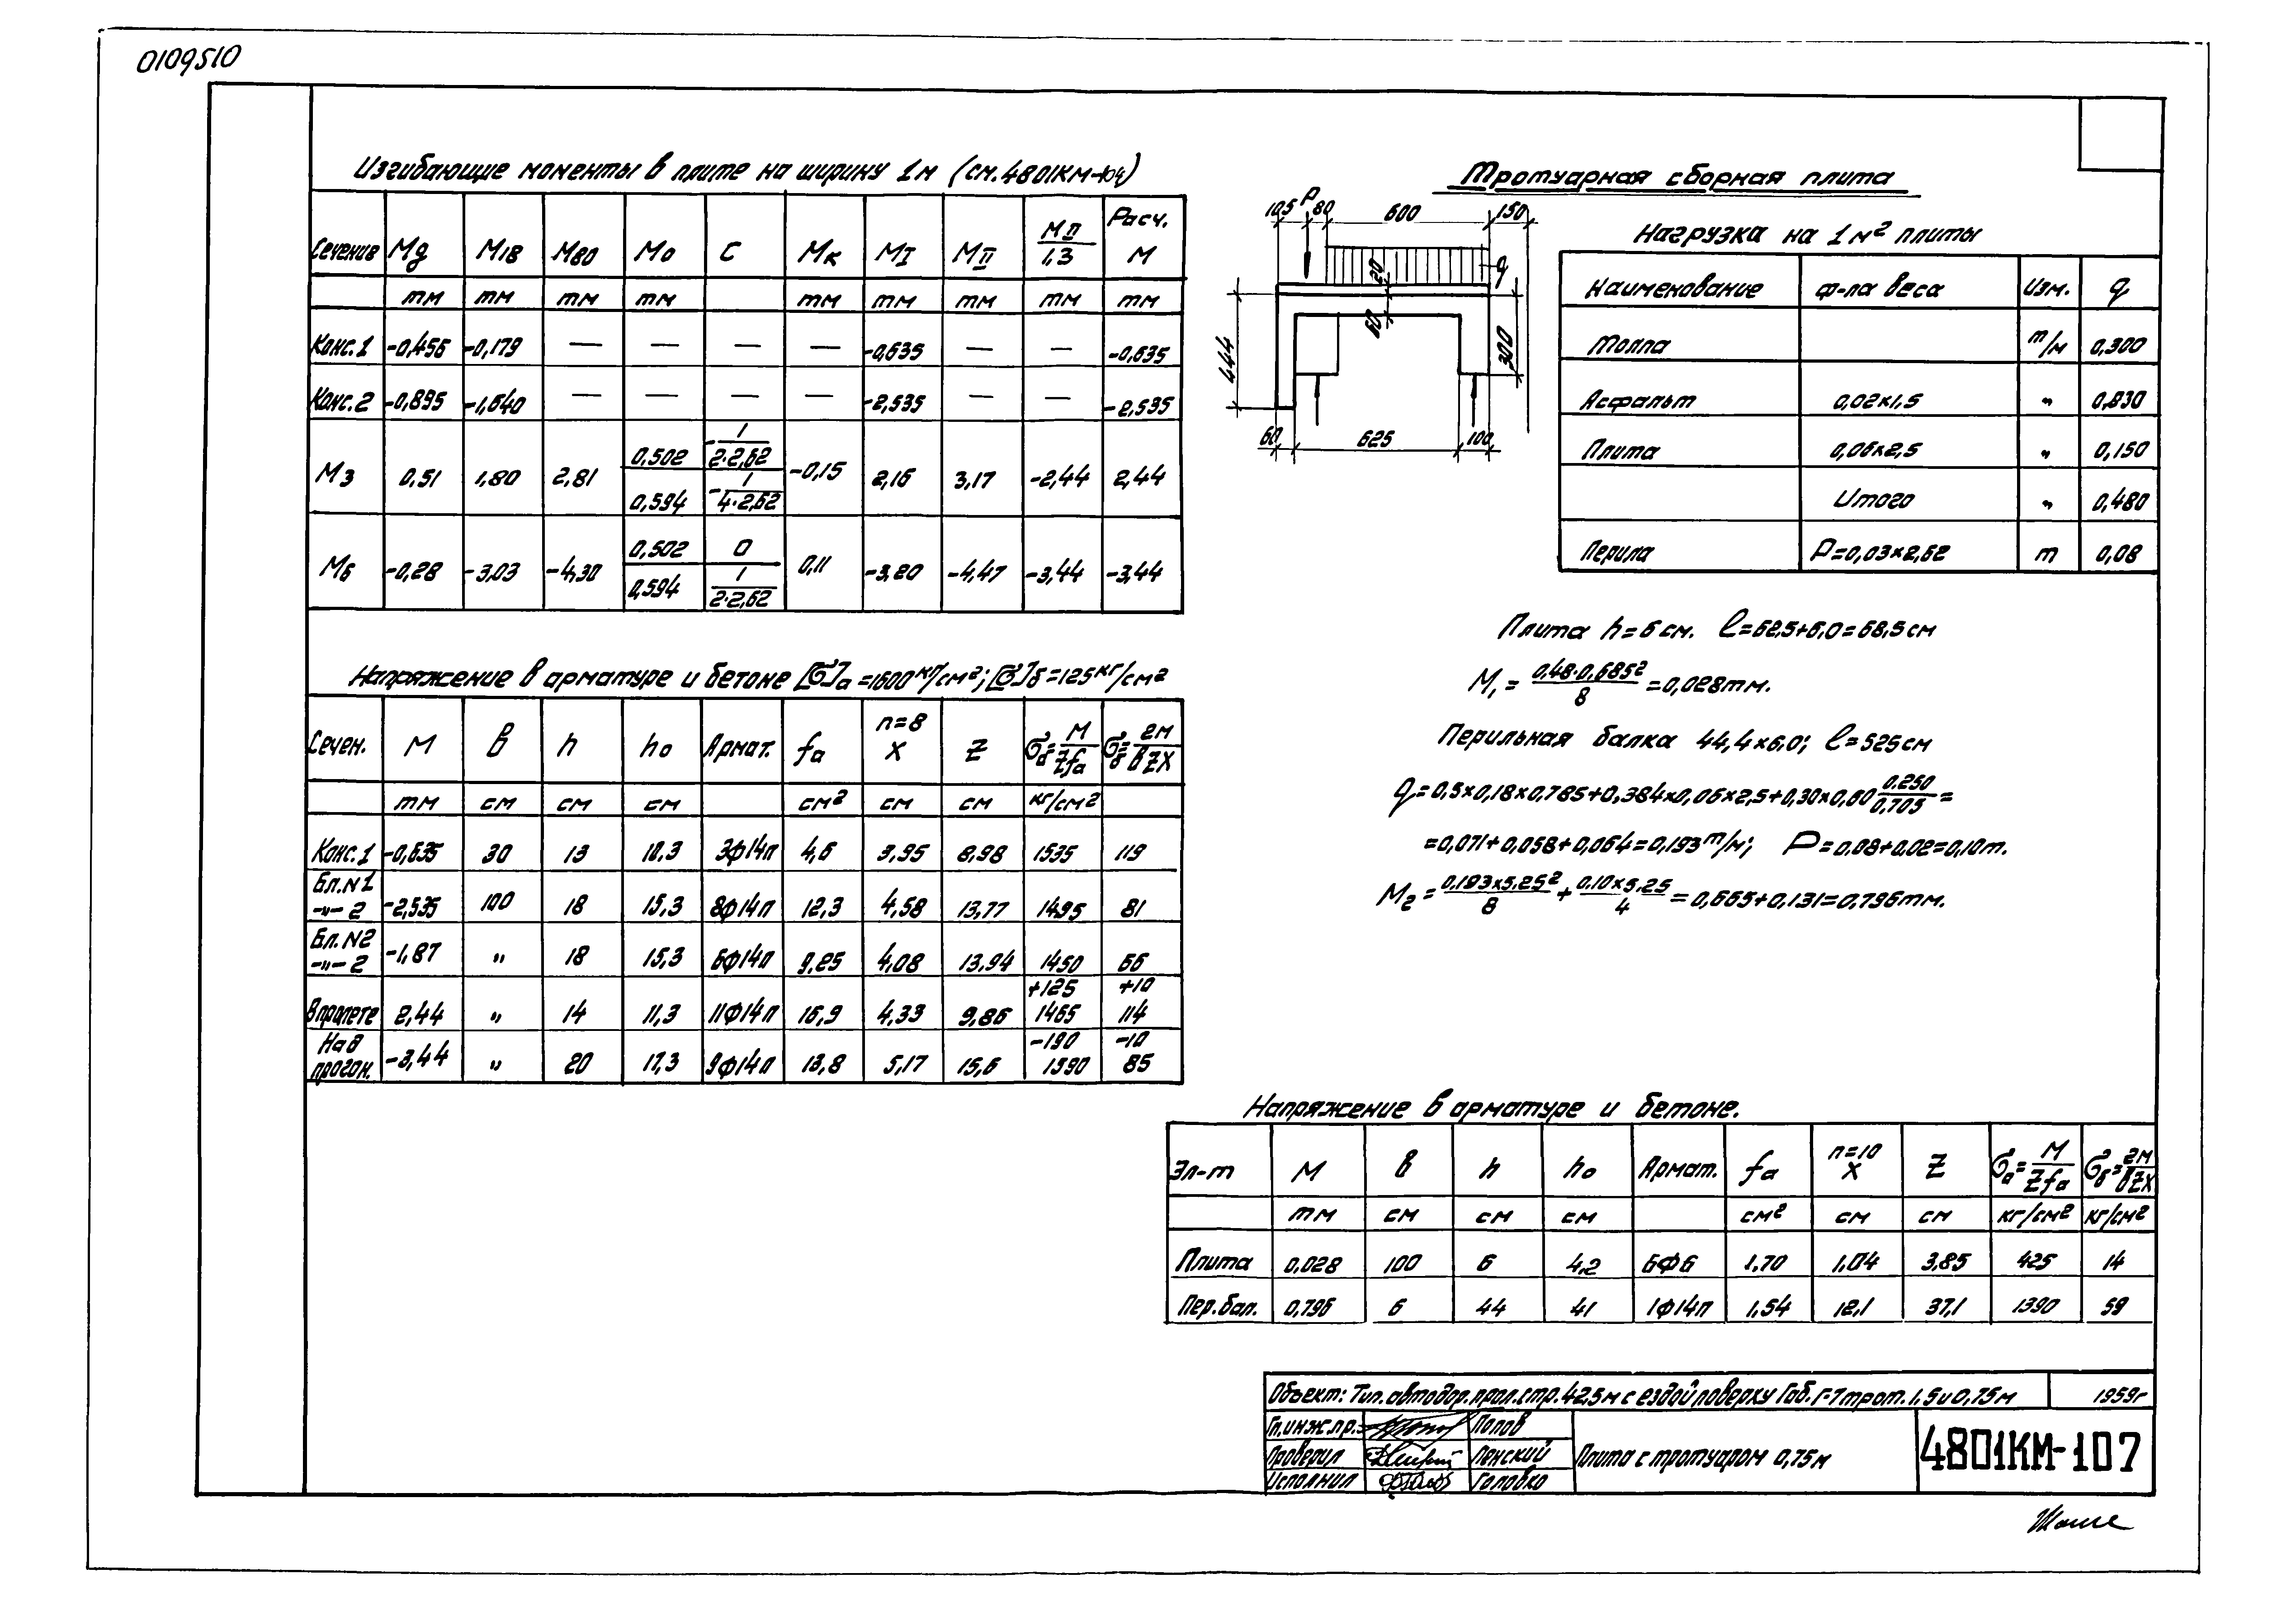 0109510
Изгибающие моменты в плите на ширину 1м (см. 4801КМ-104)
Сечение Mg M18 M80 M0 C Mк MI MII MII/1,3 Расч. M
тм тм тм тм тм тм тм тм тм
Конс.1 -0,456 -0,179 — — — — -0,635 — — -0,635
Конс.2 -0,895 -1,640 — — — — -2,535 — — -2,535
M3 0,51 1,80 2,81 0,502 -1/2·2,62 -0,15 2,16 3,17 -2,44 2,44
0,594 -1/4·2,62
Mб -0,28 -3,03 -4,30 0,502 0 0,11 -3,20 -4,47 -3,44 -3,44
0,594 1/2·2,62
Напряжение в арматуре и бетоне [σ]а=1600 кг/см²; [σ]б=125 кг/см²
Сечен. M в h h0 Армат. fa n=8 X Z σа=M/Zfa σб=2M/вZX
тм см см см см² см см кг/см²
Конс.1 -0,635 30 13 10,3 3ф14п 4,6 3,95 8,98 1535 119
Бл.N1
-"- 2 -2,535 100 18 15,3 8ф14п 12,3 4,58 13,77 1495 81
Бл.N2
-"- 2 -1,87 " 18 15,3 6ф14п 9,25 4,08 13,94 1450 66
+125 +10
В пролете 2,44 " 14 11,3 11ф14п 16,9 4,33 9,86 1465 114
Над -190 -10
прогон. -3,44 " 20 17,3 9ф14п 13,8 5,17 15,6 1390 85
Тротуарная сборная плита
105 P 80 600 150
20 q
60
444 300
60 625 100
Нагрузка на 1м² плиты
Наименование ф-ла веса Изм. q
Толпа т/м 0,300
Асфальт 0,02×1,5 " 0,030
Плита 0,06×2,5 " 0,150
Итого " 0,480
Перила P=0,03×2,62 т 0,08
Плита h=6см. l=62,5+6,0=68,5см
M1 = 0,48·0,685²/8 = 0,028тм.
Перильная балка 44,4×6,0; l=525см
q=0,5×0,18×0,785+0,384×0,06×2,5+0,30×0,60 0,250/0,705 =
=0,071+0,058+0,064=0,193 т/м; P=0,08+0,02=0,10т.
M2 = 0,193×5,25²/8 + 0,10×5,25/4 = 0,665+0,131=0,796тм.
Напряжение в арматуре и бетоне.
Эл-т M в h h0 Армат. fa n=10 X Z σа=M/Zfa σб=2M/вZX
тм см см см см² см см кг/см² кг/см²
Плита 0,028 100 6 4,2 6ф6 1,70 1,04 3,85 425 14
Пер.бал. 0,796 6 44 41 1ф14п 1,54 12,1 37,1 1390 59
Объект: Тип. автодор. прол. стр. 42,5м с ездой поверху Габ. Г-7 трот. 1,5 и 0,75м 1959г
Гл.инж.пр. Попов
Проверил Ленский
Исполнил Головко
Плита с тротуаром 0,75м
4801КМ-107